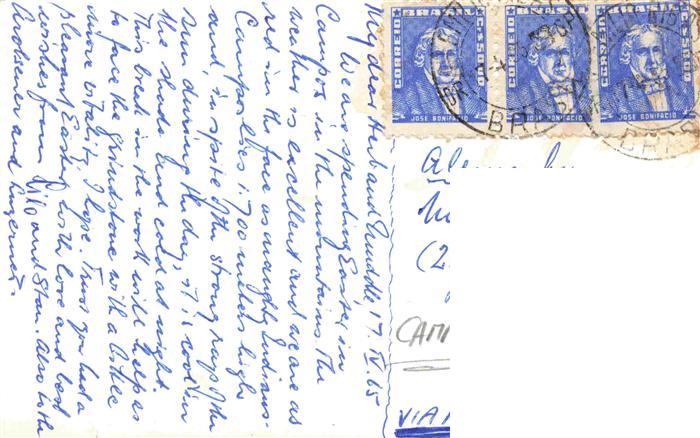 My dear Herb and Trudde, 17. IV. 65
We are spending Easter in
Campos in the mountains the
weather is excellent and we are as
red in the face as naughty Indians.
Campos lies 1.700 meters high
and, in spite of the strong rays of the
sun during the day, it is cool in
the shade and cold at night.
This break in the work will help us
to face the grindstone with a little
more vitality I hope. Trust you had a
pleasant Easter, with love and best
wishes from Lilo and Stan. Also to the
and
CORREIO BRASIL
JOSE BONIFACIO
CORREIO BRASIL
JOSE BONIFACIO
CORREIO BRASIL
JOSE BONIFACIO
(2
CAM
VIA